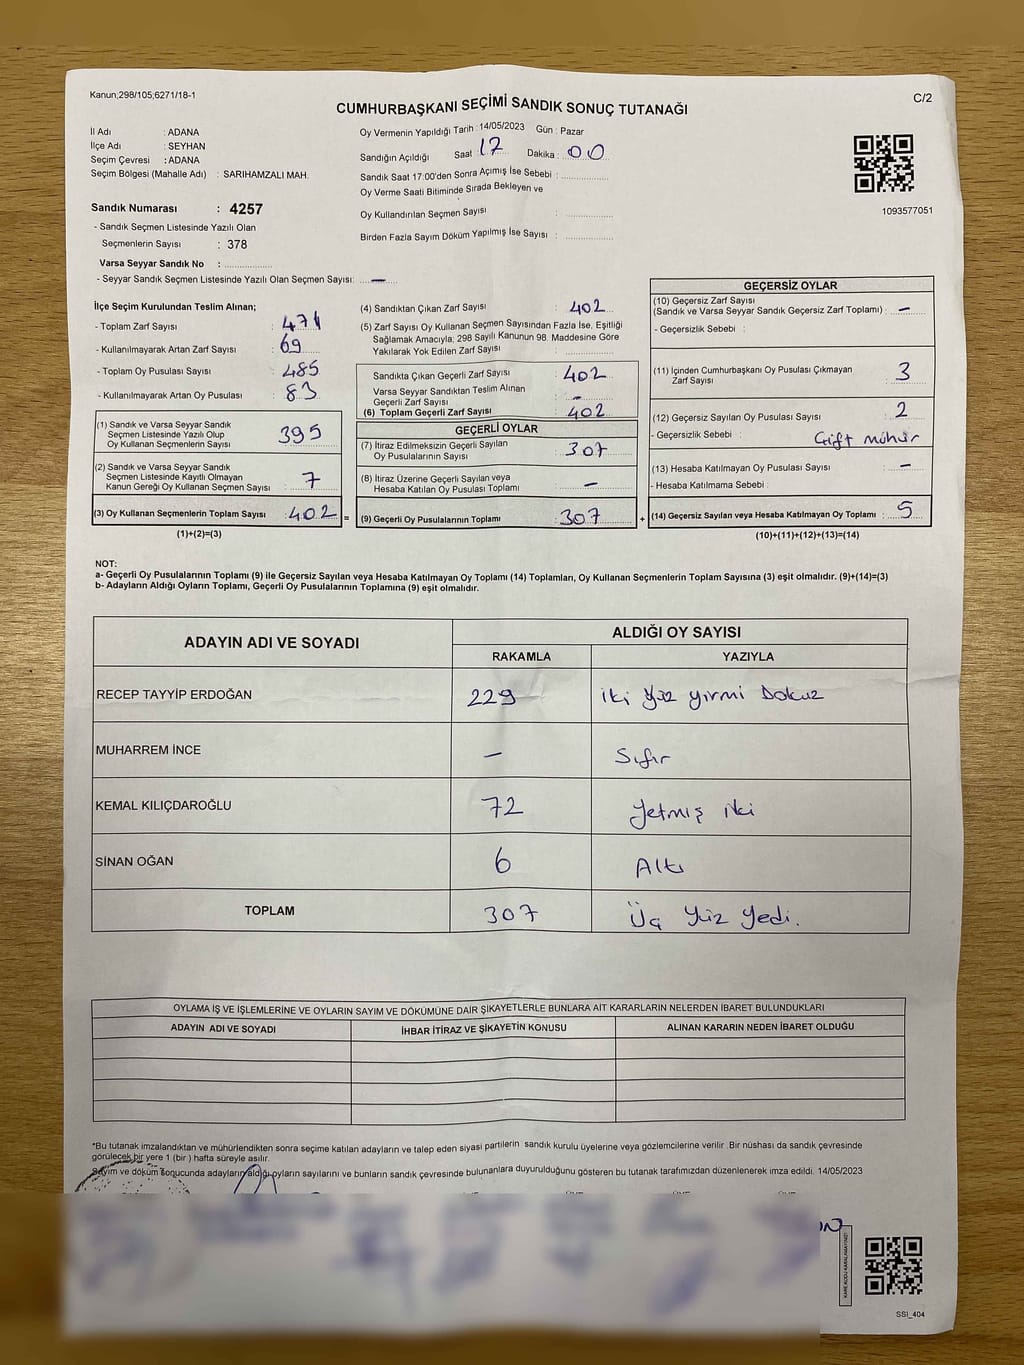 Kanun;298/105;6271/18-1
C/2
CUMHURBAŞKANI SEÇİMİ SANDIK SONUÇ TUTANAĞI
İl Adı : ADANA
İlçe Adı : SEYHAN
Seçim Çevresi : ADANA
Seçim Bölgesi (Mahalle Adı) : SARIHAMZALI MAH.
Sandık Numarası : 4257
- Sandık Seçmen Listesinde Yazılı Olan
Seçmenlerin Sayısı : 378
Varsa Seyyar Sandık No :
- Seyyar Sandık Seçmen Listesinde Yazılı Olan Seçmen Sayısı: —
Oy Vermenin Yapıldığı Tarih : 14/05/2023 Gün : Pazar
Sandığın Açıldığı Saat 17 Dakika : 00
Sandık Saat 17:00'den Sonra Açımış İse Sebebi :
Oy Verme Saati Bitiminde Sırada Bekleyen ve
Oy Kullandırılan Seçmen Sayısı :
Birden Fazla Sayım Döküm Yapılmış İse Sayısı :
1093577051
İlçe Seçim Kurulundan Teslim Alınan;
- Toplam Zarf Sayısı : 471
- Kullanılmayarak Artan Zarf Sayısı : 69
- Toplam Oy Pusulası Sayısı : 485
- Kullanılmayarak Artan Oy Pusulası : 83
(1) Sandık ve Varsa Seyyar Sandık
Seçmen Listesinde Yazılı Olup
Oy Kullanan Seçmenlerin Sayısı : 395
(2) Sandık ve Varsa Seyyar Sandık
Seçmen Listesinde Kayıtlı Olmayan
Kanun Gereği Oy Kullanan Seçmen Sayısı : 7
(3) Oy Kullanan Seçmenlerin Toplam Sayısı : 402 =
(1)+(2)=(3)
(4) Sandıktan Çıkan Zarf Sayısı : 402
(5) Zarf Sayısı Oy Kullanan Seçmen Sayısından Fazla İse, Eşitliği
Sağlamak Amacıyla; 298 Sayılı Kanunun 98. Maddesine Göre
Yakılarak Yok Edilen Zarf Sayısı :
Sandıkta Çıkan Geçerli Zarf Sayısı : 402
Varsa Seyyar Sandıktan Teslim Alınan
Geçerli Zarf Sayısı : -
(6) Toplam Geçerli Zarf Sayısı : 402
GEÇERLİ OYLAR
(7) İtiraz Edilmeksizin Geçerli Sayılan
Oy Pusulalarının Sayısı : 307
(8) İtiraz Üzerine Geçerli Sayılan veya
Hesaba Katılan Oy Pusulası Toplamı : —
(9) Geçerli Oy Pusulalarının Toplamı : 307 +
GEÇERSİZ OYLAR
(10) Geçersiz Zarf Sayısı
(Sandık ve Varsa Seyyar Sandık Geçersiz Zarf Toplamı) : —
- Geçersizlik Sebebi :
(11) İçinden Cumhurbaşkanı Oy Pusulası Çıkmayan
Zarf Sayısı : 3
(12) Geçersiz Sayılan Oy Pusulası Sayısı : 2
- Geçersizlik Sebebi : Çift mühür
(13) Hesaba Katılmayan Oy Pusulası Sayısı : —
- Hesaba Katılmama Sebebi :
(14) Geçersiz Sayılan veya Hesaba Katılmayan Oy Toplamı : 5
(10)+(11)+(12)+(13)=(14)
NOT:
a- Geçerli Oy Pusulalarının Toplamı (9) ile Geçersiz Sayılan veya Hesaba Katılmayan Oy Toplamı (14) Toplamları, Oy Kullanan Seçmenlerin Toplam Sayısına (3) eşit olmalıdır. (9)+(14)=(3)
b- Adayların Aldığı Oyların Toplamı, Geçerli Oy Pusulalarının Toplamına (9) eşit olmalıdır.
ADAYIN ADI VE SOYADI
ALDIĞI OY SAYISI
RAKAMLA YAZIYLA
RECEP TAYYİP ERDOĞAN 229 iki yüz yirmi Dokuz
MUHARREM İNCE — Sıfır
KEMAL KILIÇDAROĞLU 72 Yetmiş iki
SİNAN OĞAN 6 Altı
TOPLAM 307 Üç Yüz Yedi.
OYLAMA İŞ VE İŞLEMLERİNE VE OYLARIN SAYIM VE DÖKÜMÜNE DAİR ŞİKAYETLERLE BUNLARA AİT KARARLARIN NELERDEN İBARET BULUNDUKLARI
ADAYIN ADI VE SOYADI İHBAR İTİRAZ VE ŞİKAYETİN KONUSU ALINAN KARARIN NEDEN İBARET OLDUĞU
*Bu tutanak imzalandıktan ve mühürlendikten sonra seçime katılan adayların ve talep eden siyasi partilerin sandık kurulu üyelerine veya gözlemcilerine verilir. Bir nüshası da sandık çevresinde
görülecek bir yere 1 (bir) hafta süreyle asılır.
Sayım ve döküm sonucunda adayların aldığı oyların sayılarını ve bunların sandık çevresinde bulunanlara duyurulduğunu gösteren bu tutanak tarafımızdan düzenlenerek imza edildi. 14/05/2023
SSI_404